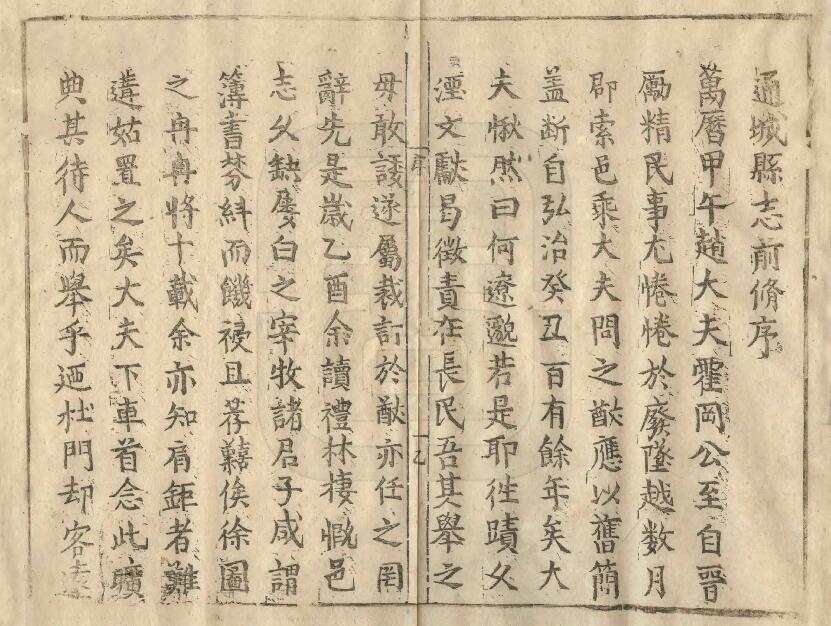 通城縣志前脩序
萬曆甲午趙大夫霍岡公至自晉
勵精民事尤惓惓於廢墜越数月
即索邑乘大夫問之猷應以舊簡
盖断自弘治癸丑百有餘年矣大
夫愀然曰何遼邈若是耶徃蹟久
湮文獻曷徵責在長民吾其舉之
毋敢諼遂屬裁訂於猷亦任之罔
辭先是歲乙酉余讀禮林棲慨邑
志久缺屢白之宰牧諸君子咸謂
簿書棼糾而饑祲且荐囏俟徐圖
之冉冉將十載余亦知肩鉅者難
遘姑置之矣大夫下車首念此曠
典其待人而舉乎廼杜門却客
序
一乙